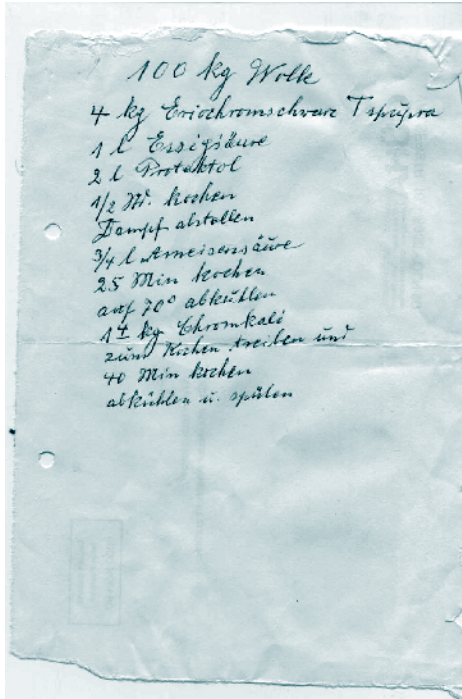 100 kg Wolle
4 kg Eriochromschwarz T supra
1 l Essigsäure
2 l Protektol
1/2 St. kochen
Dampf abstellen
3/4 l Ameisensäure
25 Min kochen
auf 70° abkühlen
kg Chromkali
zum Kochen treiben und
40 Min kochen
abkühlen u. spülen